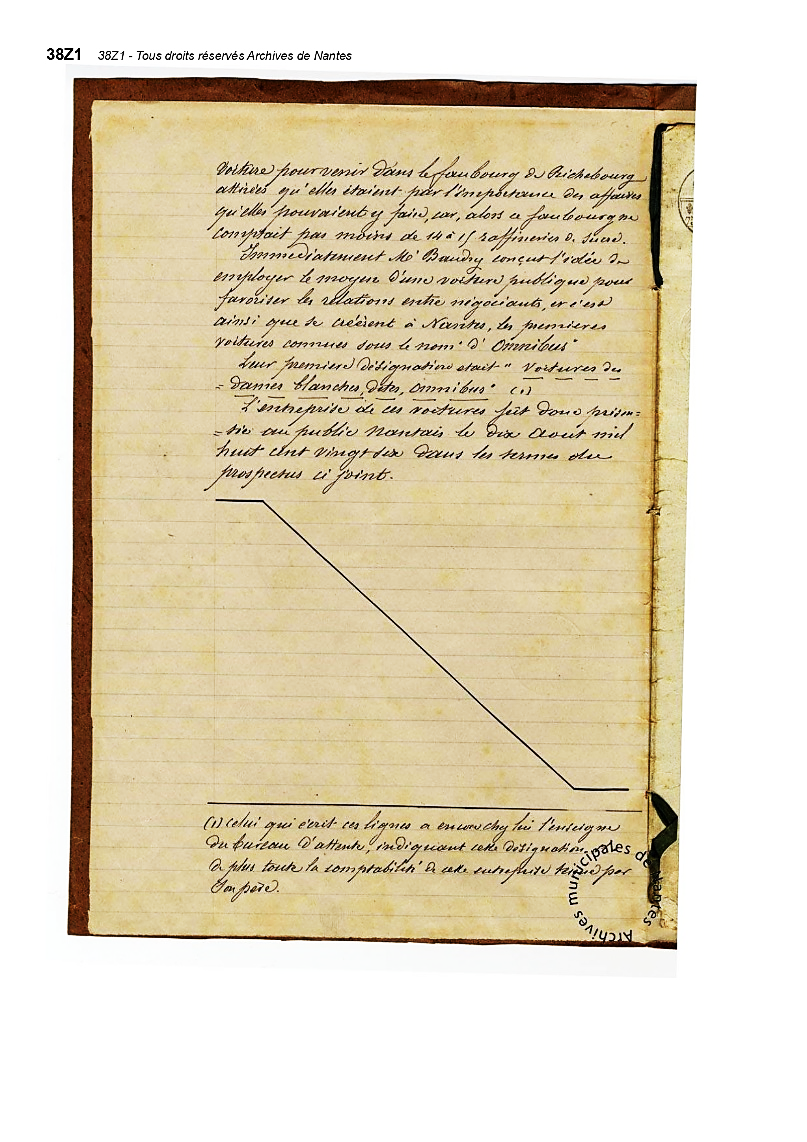 38Z1 38Z1 - Tous droits réservés Archives de Nantes
Voiture pour venir dans le faubourg de Richebourg
attirées qu'elles étaient par l'importance des affaires
qu'elles pouvaient y faire, car, alors ce faubourg ne
comptait pas moins de 14 à 15 raffineries de Sucre.
Immédiatement Mr Baudry conçut l'idée de
employer le moyen d'une voiture publique pour
favoriser les relations entre négociants, et c'est
ainsi que se créèrent à Nantes, les premières
voitures connues sous le nom " d' Omnibus"
Leur première désignation était " Voitures des
= dames blanches, dites, Omnibus" (1)
L'entreprise de ces voitures fut donc présen=
=tée au public Nantais le dix Aout mil
huit cent vingt six dans les termes du
prospectus ci joint.
(1) Celui qui écrit ces lignes a encore chez lui l'enseigne
du bureau d'attente, indiquant cette désignation
de plus toute la comptabilité de cette entreprise tenue par
son père.
Archives municipales de Nantes